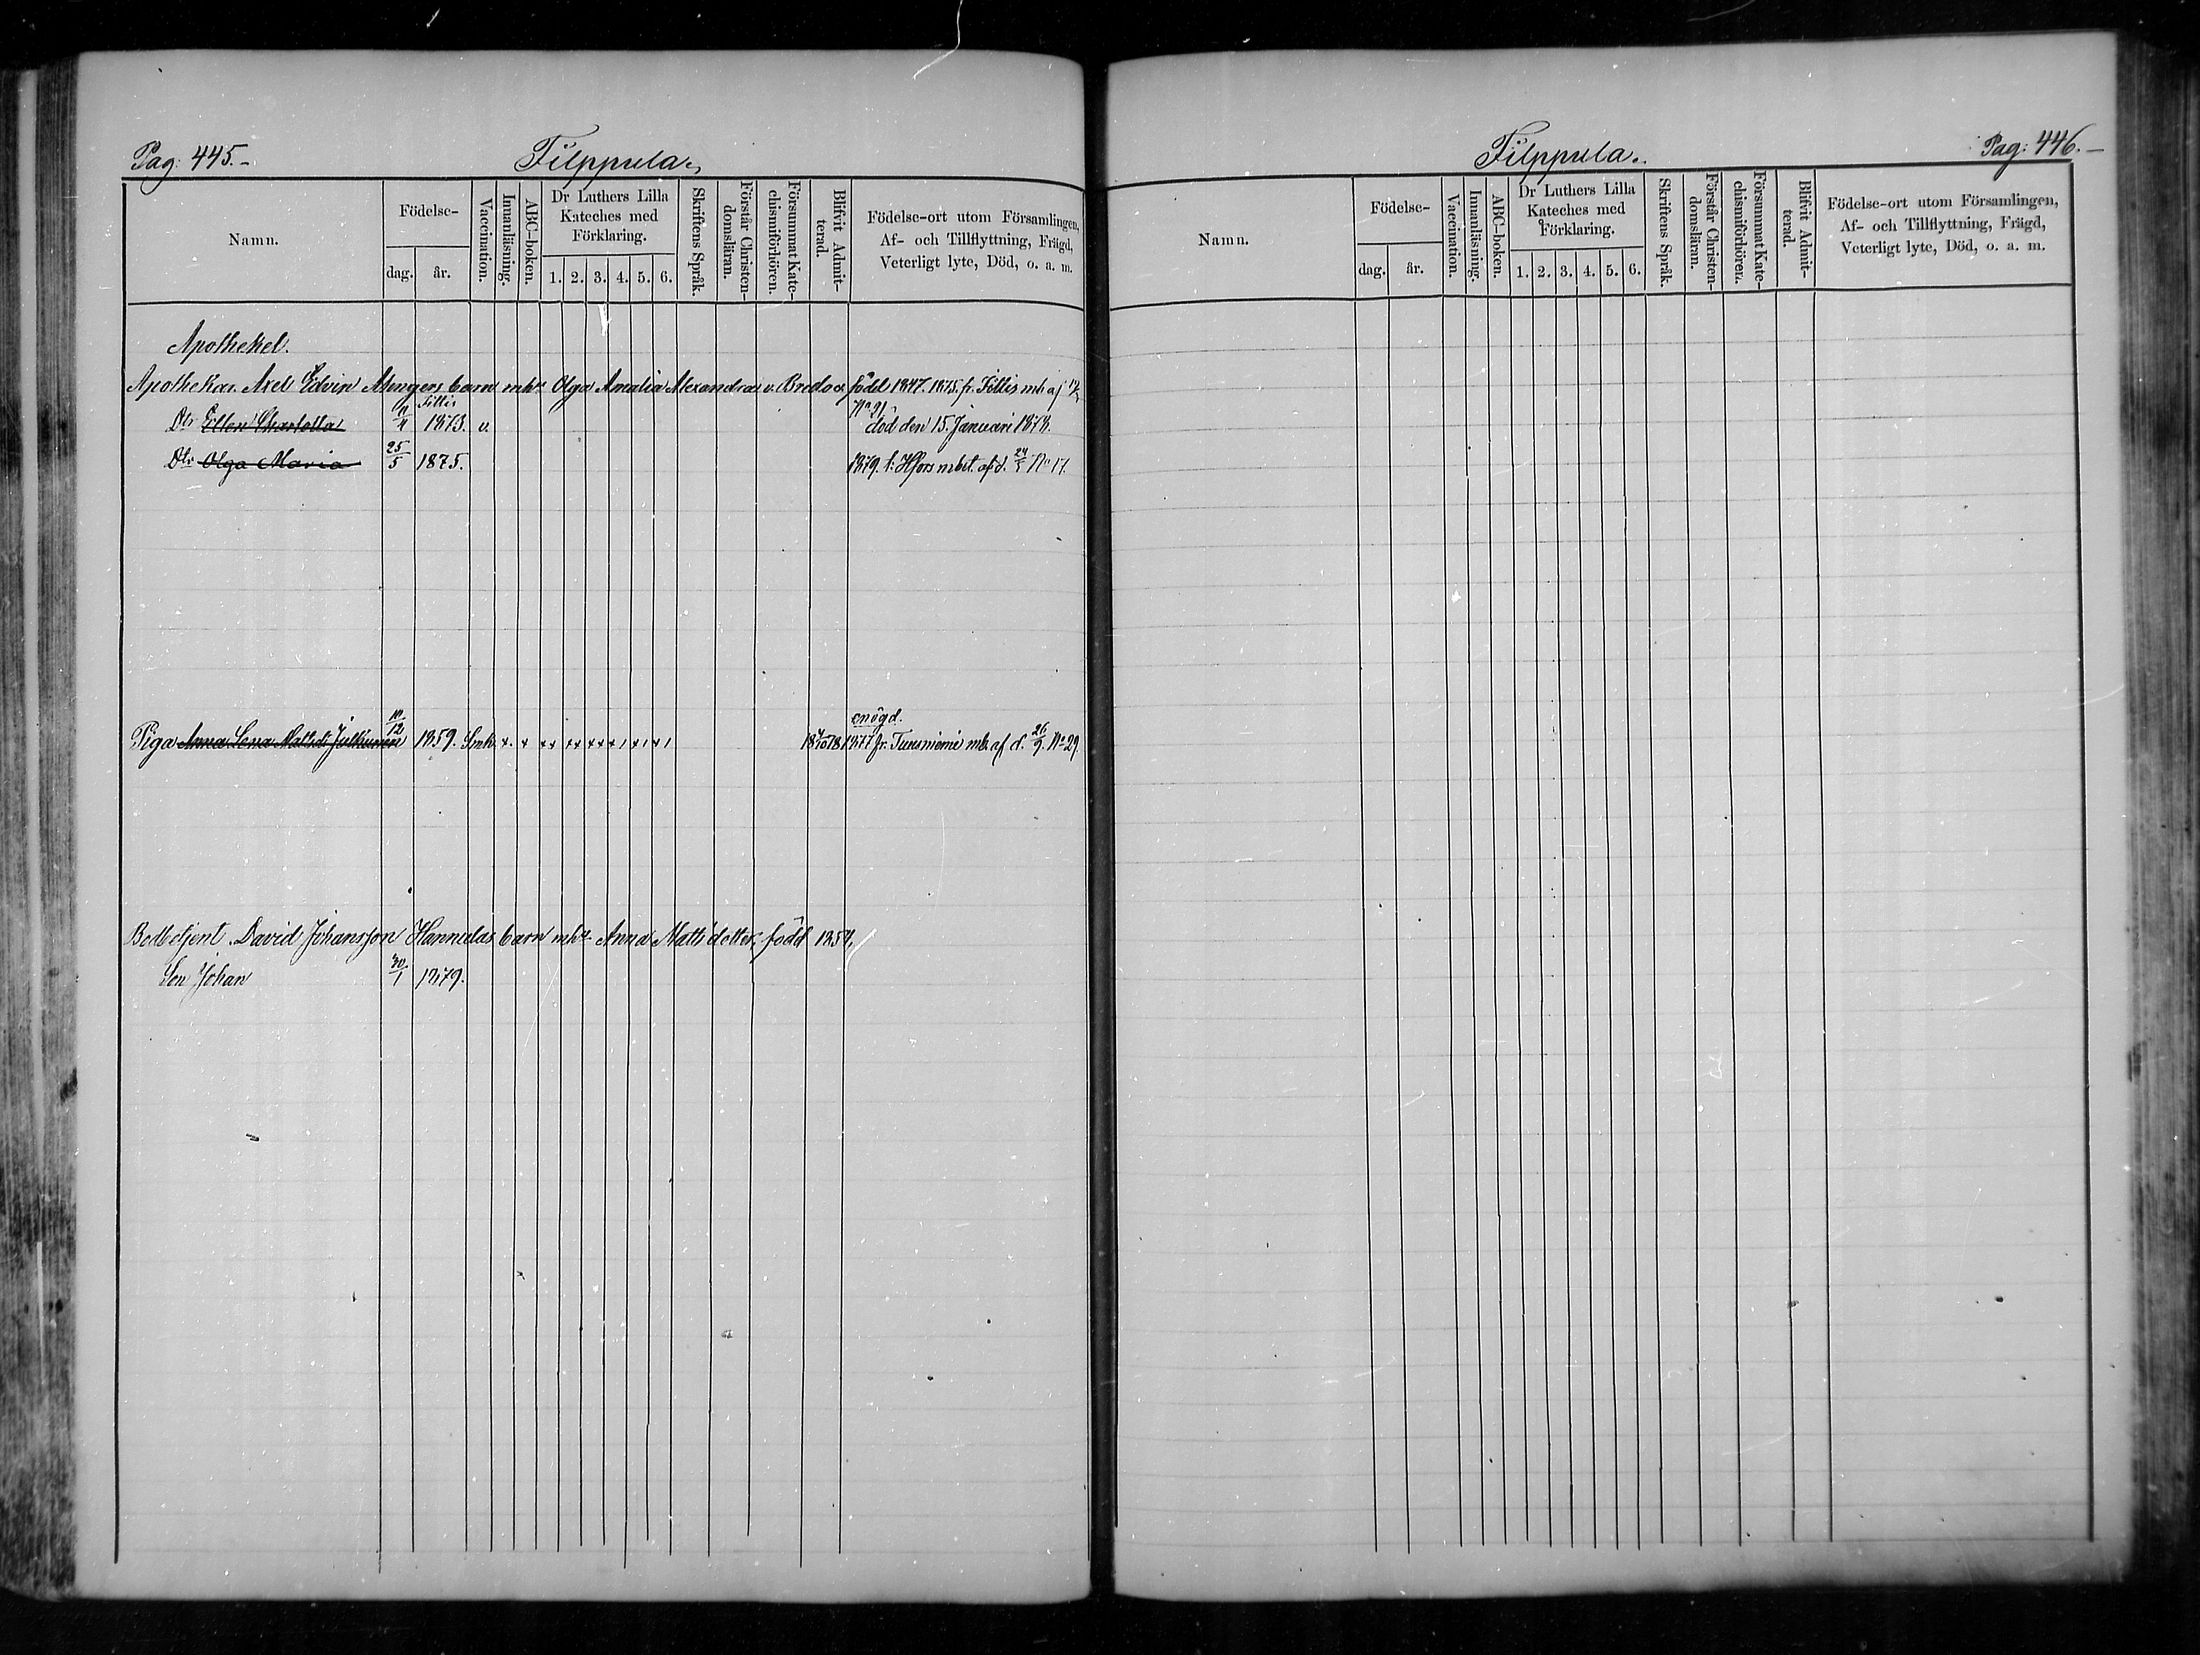 Pag: 445.-
Filppula.
Namn.
Födelse-
dag.
år.
Vaccination.
Innanläsning.
ABC-boken.
Dr Luthers Lilla
Kateches med
Förklaring.
1. 2. 3. 4. 5. 6.
Skriftens Språk.
Förstår Christen-
domsläran.
Försummat Kate-
chismiförhören.
Blifvit Admit-
terad.
Födelse-ort utom Församlingen,
Af- och Tillflyttning, Frägd,
Veterligt lyte, Död, o. a. m.
Apothekel.
Apothekar Axel Edvin barn mhu Olga Amalia Alexandra v. född 1847. 1875. fr.
Dtr Ellen Charlotta 1873. v. död den 15. Januari 1878.
Dtr Olga Maria 25/5 1875. 1879. t: Hfors af d. No 17.
Piga Anna Lena 10/12 1859. 1877 fr. af d. 26/9. No 29
David Johansson barn mhu Anna Mattsdotter, född 1854.
Son Johan 30/1 1879.
Filppula.
Pag: 446.-
Namn.
Födelse-
dag.
år.
Vaccination.
Innanläsning.
ABC-boken.
Dr Luthers Lilla
Kateches med
Förklaring.
1. 2. 3. 4. 5. 6.
Skriftens Språk.
Förstår Christen-
domsläran.
Försummat Kate-
chismiförhören.
Blifvit Admit-
terad.
Födelse-ort utom Församlingen,
Af- och Tillflyttning, Frägd,
Veterligt lyte, Död, o. a. m.